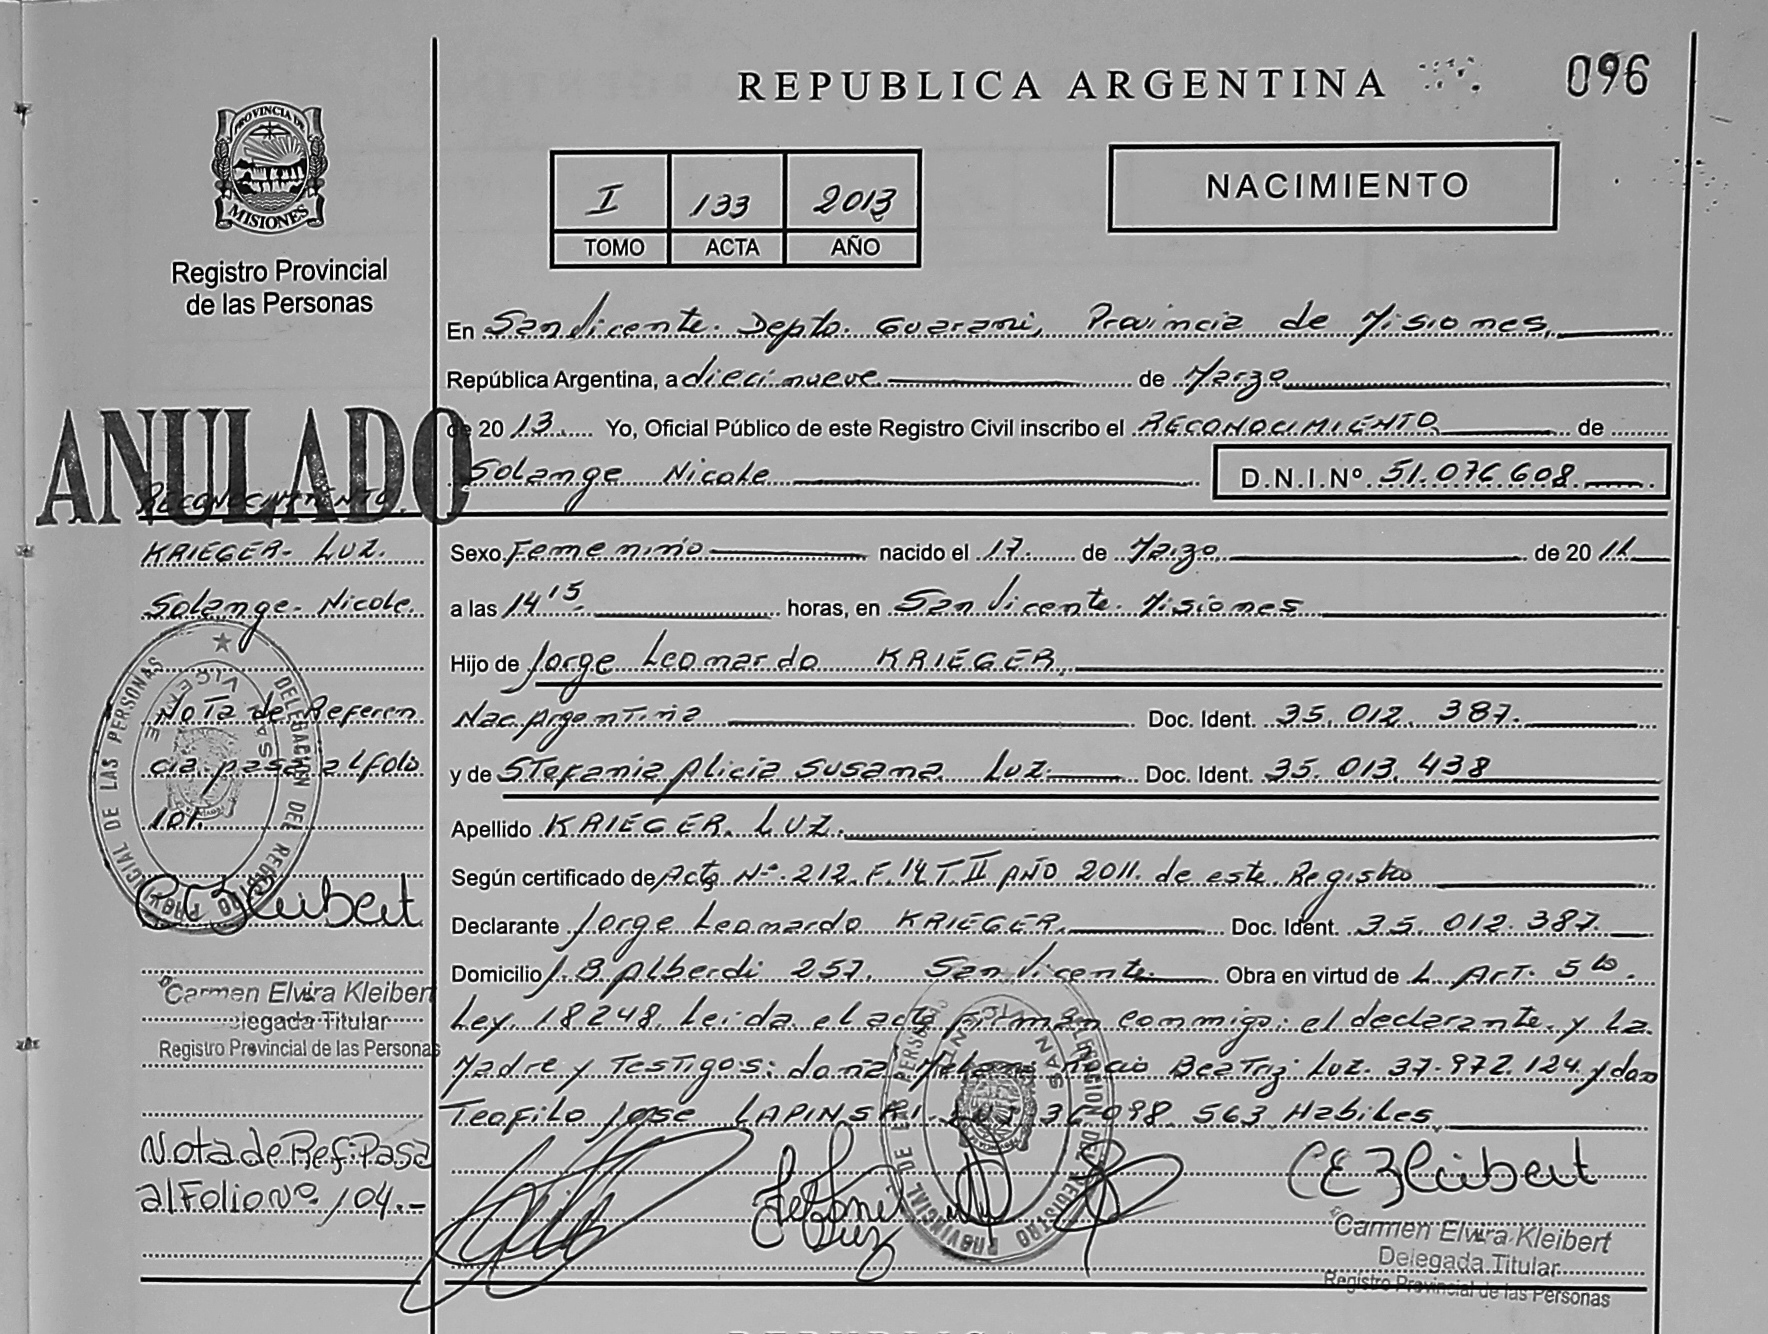 REPUBLICA ARGENTINA
096
PROVINCIA DE
MISIONES
Registro Provincial
de las Personas
I 133 2013
TOMO ACTA AÑO
NACIMIENTO
En San Vicente. Depto. Guarani, Provincia de Misiones,
República Argentina, a diecinueve de Marzo
de 2013 Yo, Oficial Público de este Registro Civil inscribo el RECONOCIMIENTO de
Solange Nicole D.N.I.Nº 51.076.608
Sexo Femenino nacido el 17 de Marzo de 2011
a las 14 15 horas, en San Vicente. Misiones
Hijo de Jorge Leonardo KRIEGER,
Nac. Argentina Doc. Ident. 35.012.387.
y de Stefania Alicia Susana Luz Doc. Ident. 35.013.438
Apellido KRIEGER. LUZ.
Según certificado de Acta Nº 212. F.14 T.II AÑO 2011. de este Registro
Declarante Jorge Leonardo KRIEGER. Doc. Ident. 35.012.387.
Domicilio J.B. Alberdi 257. San Vicente. Obra en virtud de L. Art. 5to.
Ley. 18248. Leida el acta firman conmigo: el declarante. y La
Madre y Testigos: doña Rocio Beatriz Luz. 37.972.124 y don
Teofilo Jose LAPINSKI 563 Habiles,
CE Kleibert
Carmen Elvira Kleibert
Delegada Titular
Registro Provincial de las Personas
ANULADO
RECONOCIMIENTO.
KRIEGER- LUZ.
Solange- Nicole.
Nota de Referen
cia. pasa al folio
101.
CE Kleibert
Carmen Elvira Kleibert
Delegada Titular
Registro Provincial de las Personas
Nota de Ref: Pasa
al Folio Nº 104.-
DELEGACION DEL REGISTRO PROVINCIAL DE LAS PERSONAS
SAN VICENTE
DELEGACION DEL REGISTRO PROVINCIAL DE LAS PERSONAS
SAN VICENTE